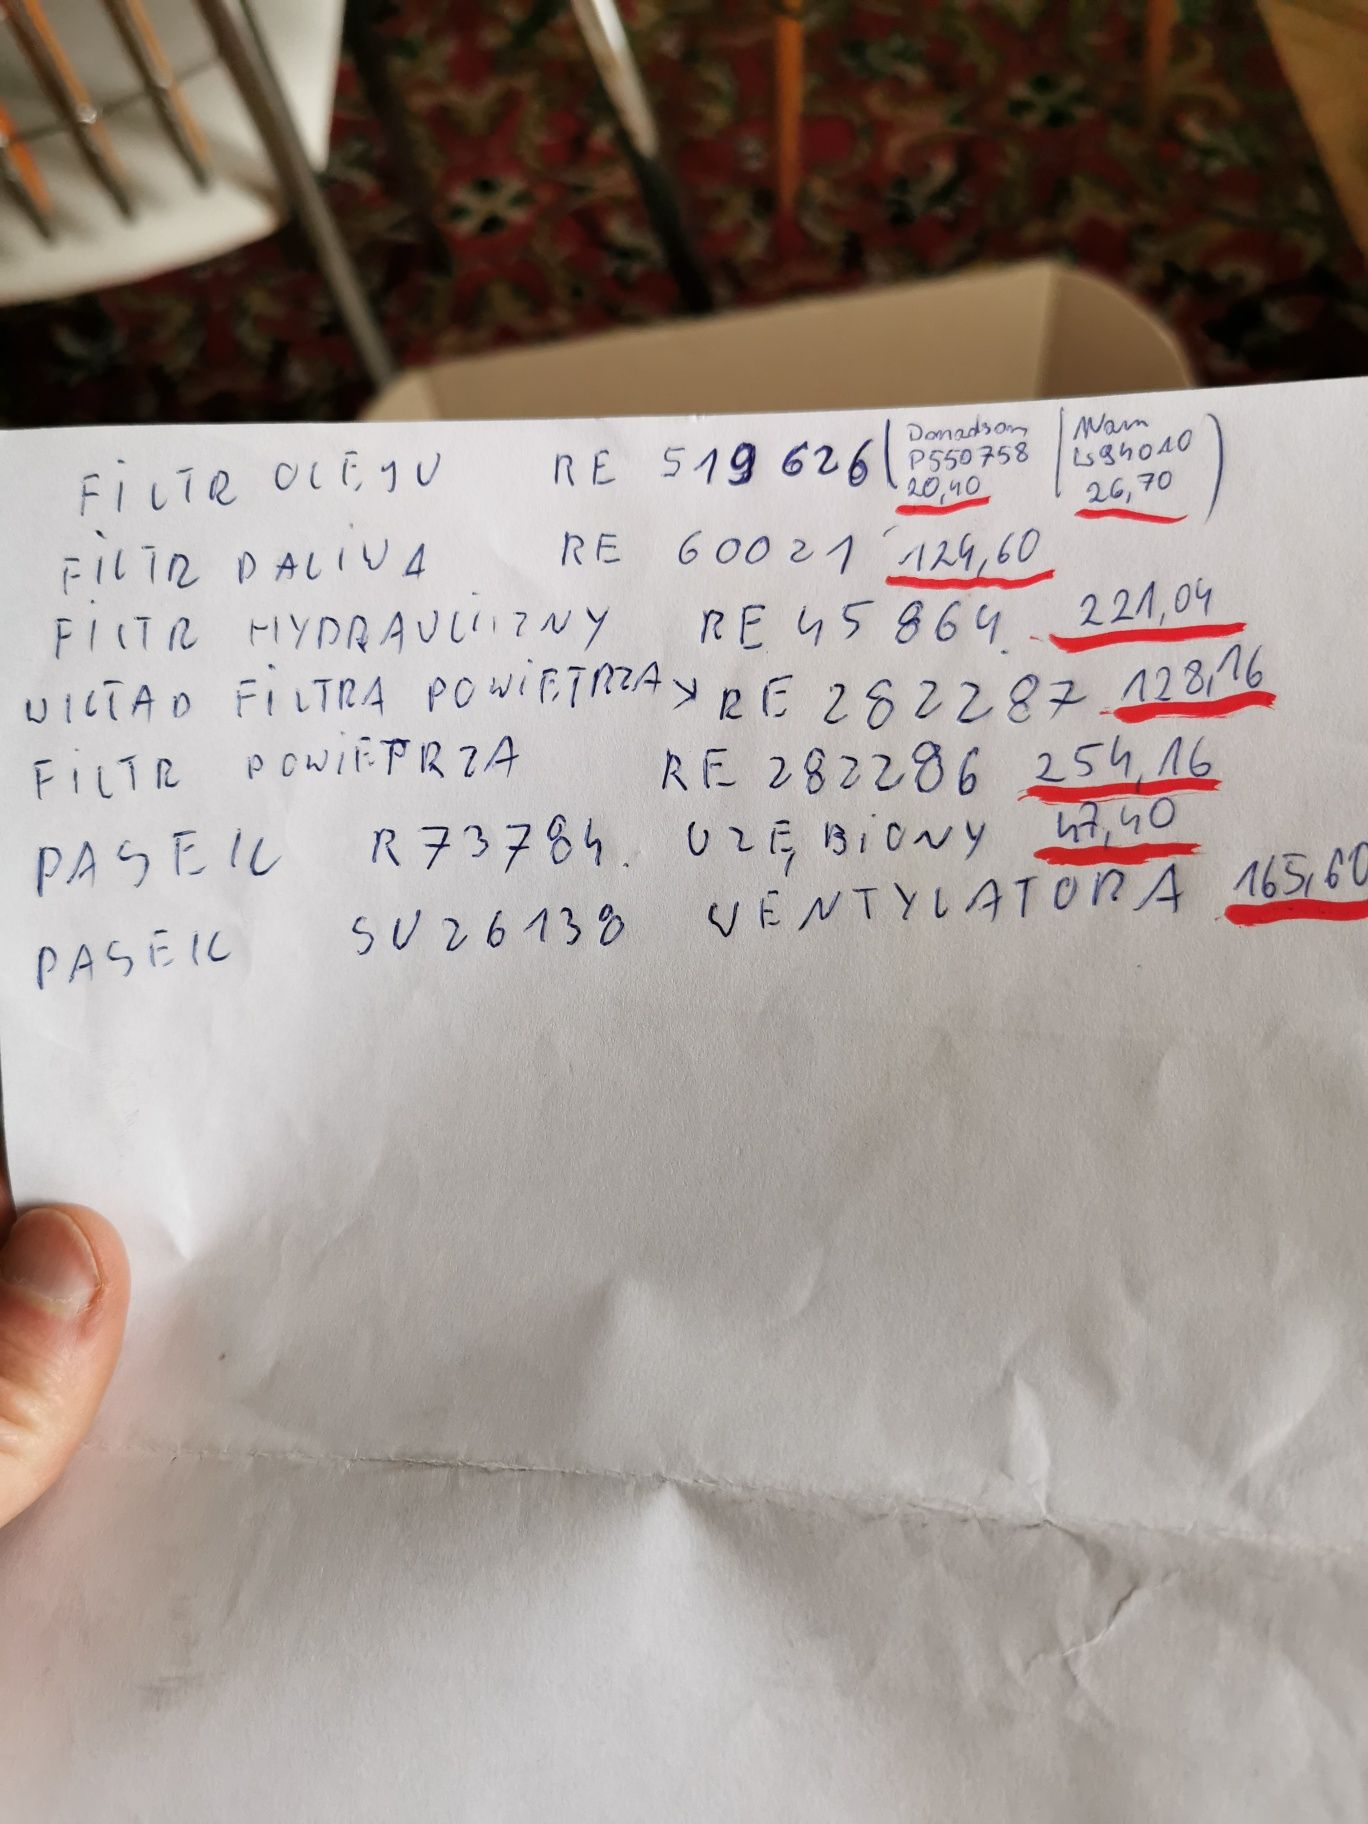 FILTR OLEJU RE 519626 ( Donadson P550758 20,40 | Wam W94010 26,70 )
FILTR PALIWA RE 60021 124,60
FILTR HYDRAULICZNY RE 45864. 221,04
WKŁAD FILTRA POWIETRZA > RE 282287 128,16
FILTR POWIETRZA RE 282286 254,16
PASEK R73784. UZĘBIONY 47,40
PASEK SU26138 WENTYLATORA 165,60